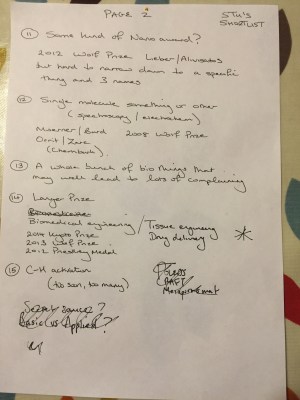 PAGE 2
STU'S
SHORTLIST
(11) Some kind of Nano award?
2012 Wolf Prize Lieber/Alivisatos
but hard to narrow down to a specific
thing and 3 names
(12) Single molecule something or other
(spectroscopy / electrochem)
Moerner/Bard 2008 Wolf Prize
Orrit/Zare
(Chembark)
(13) A whole bunch of bio things that
may well lead to lots of complaining
(14) Langer Prize
Biomedical
Biomedical engineering / Tissue engineering
Drug delivery
2014 Kyoto Prize
2013 Wolf Prize
2012 Priestley Medal
(15) C-H activation
(too soon, too many)
RAFT
Secret source?
Basic vs Applied?